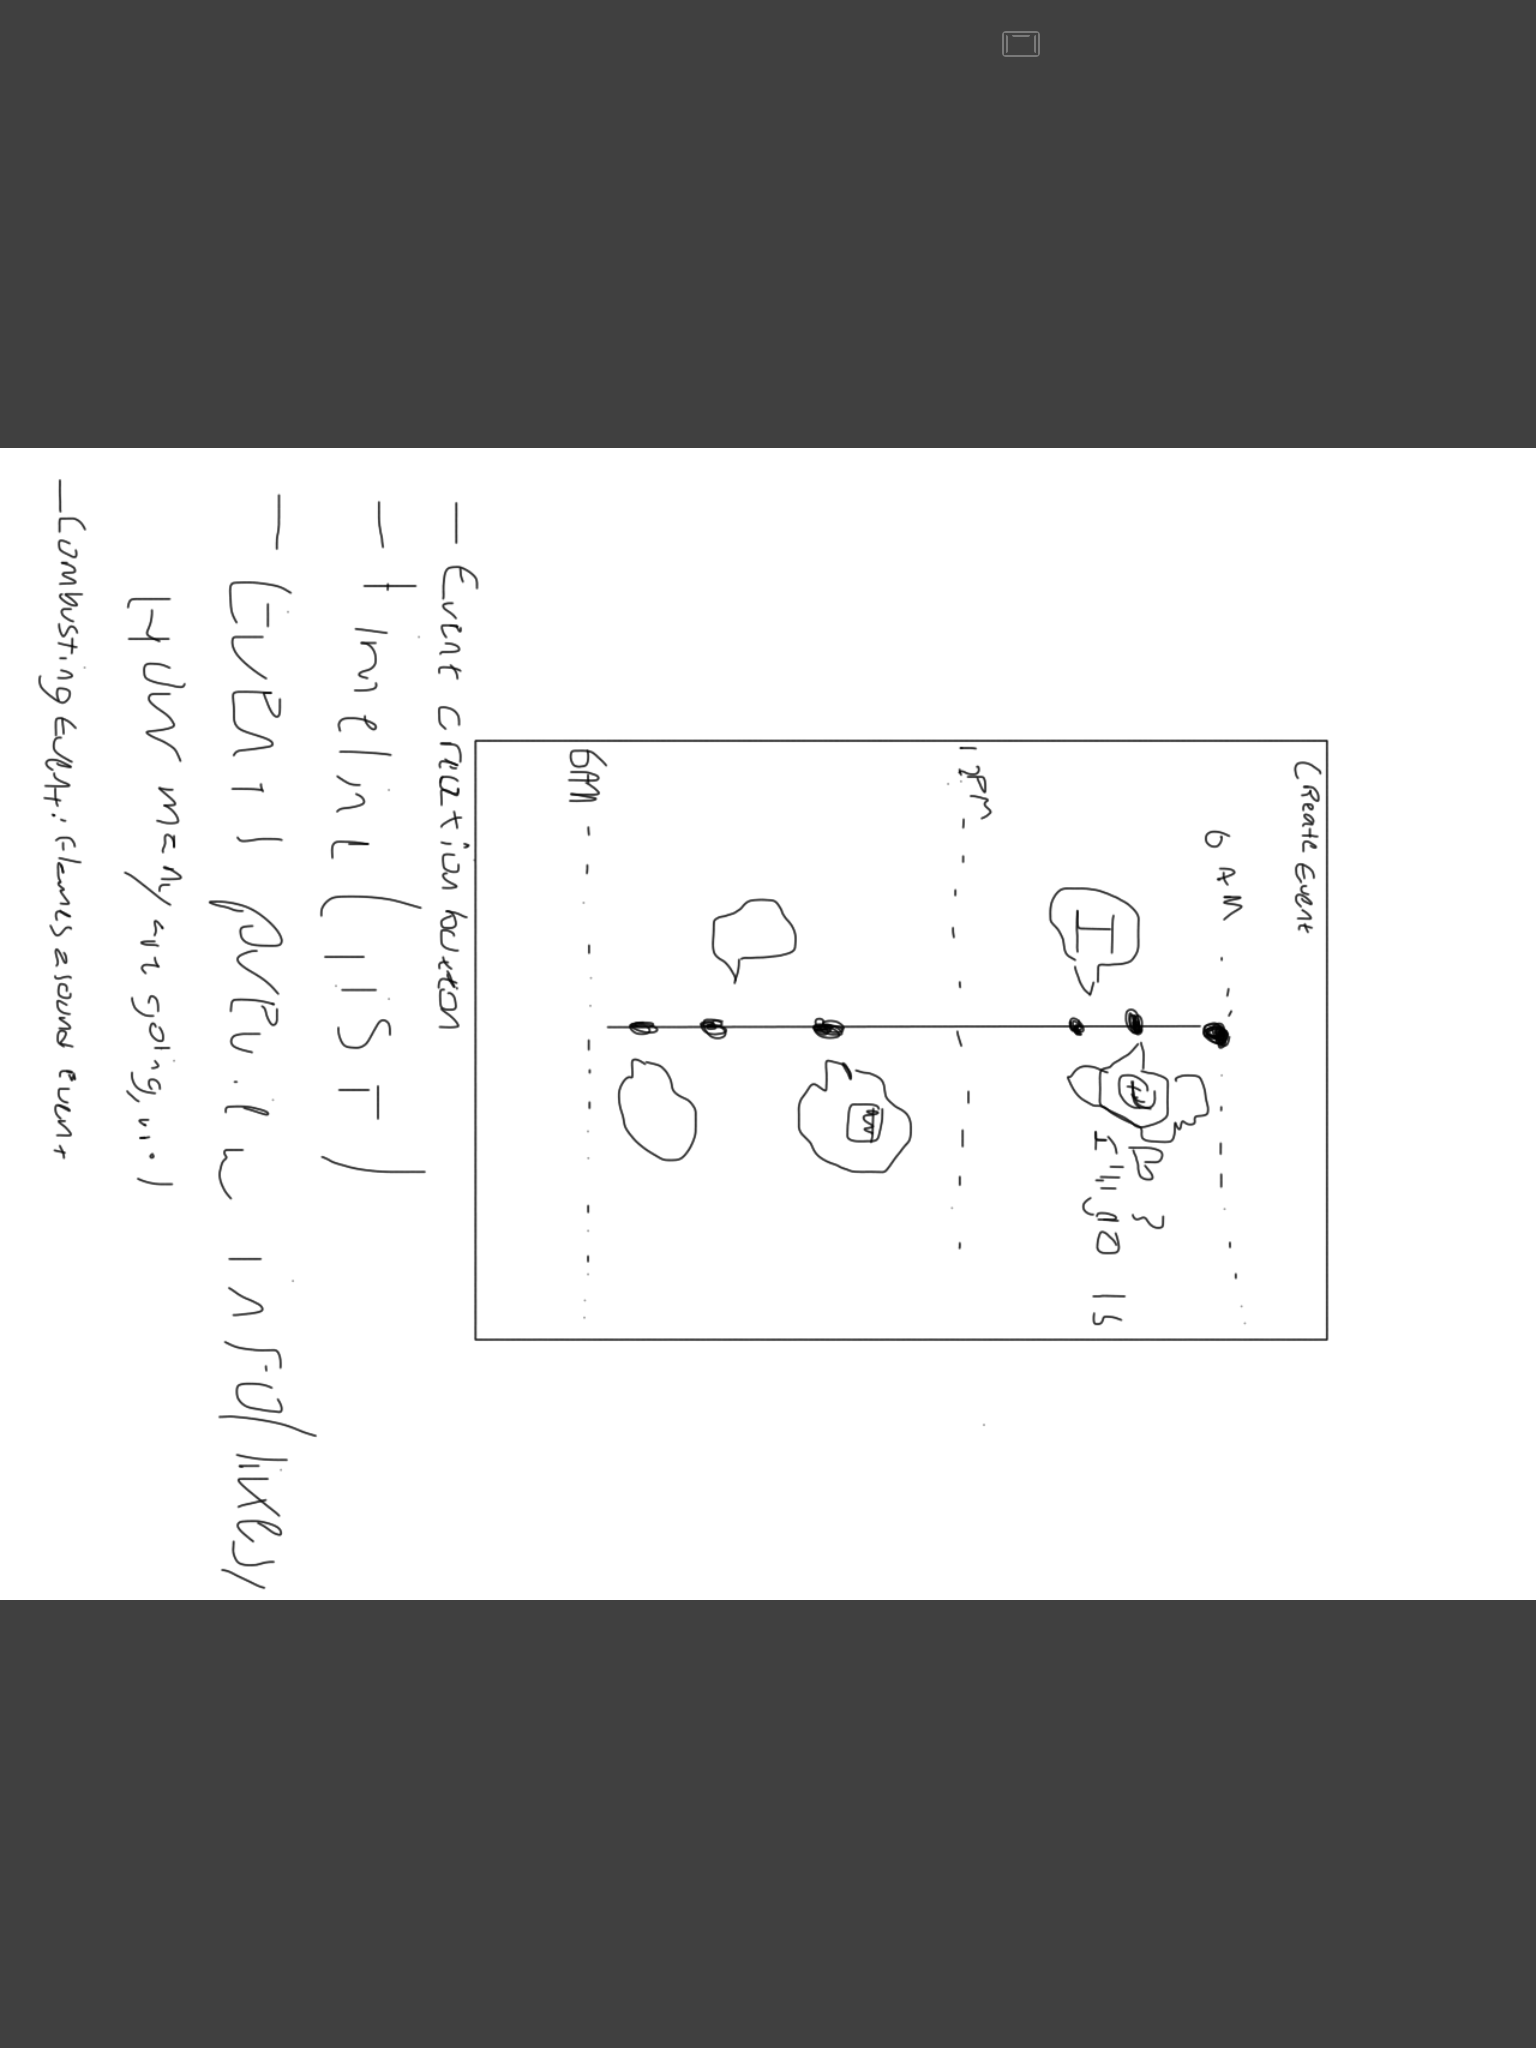 Create Event
6 AM
12PM
6AM
I
- Event creation button
- timeline (list)
- Event preview info (likes,
How many are going, ...)
- Combusting Event: flames around event